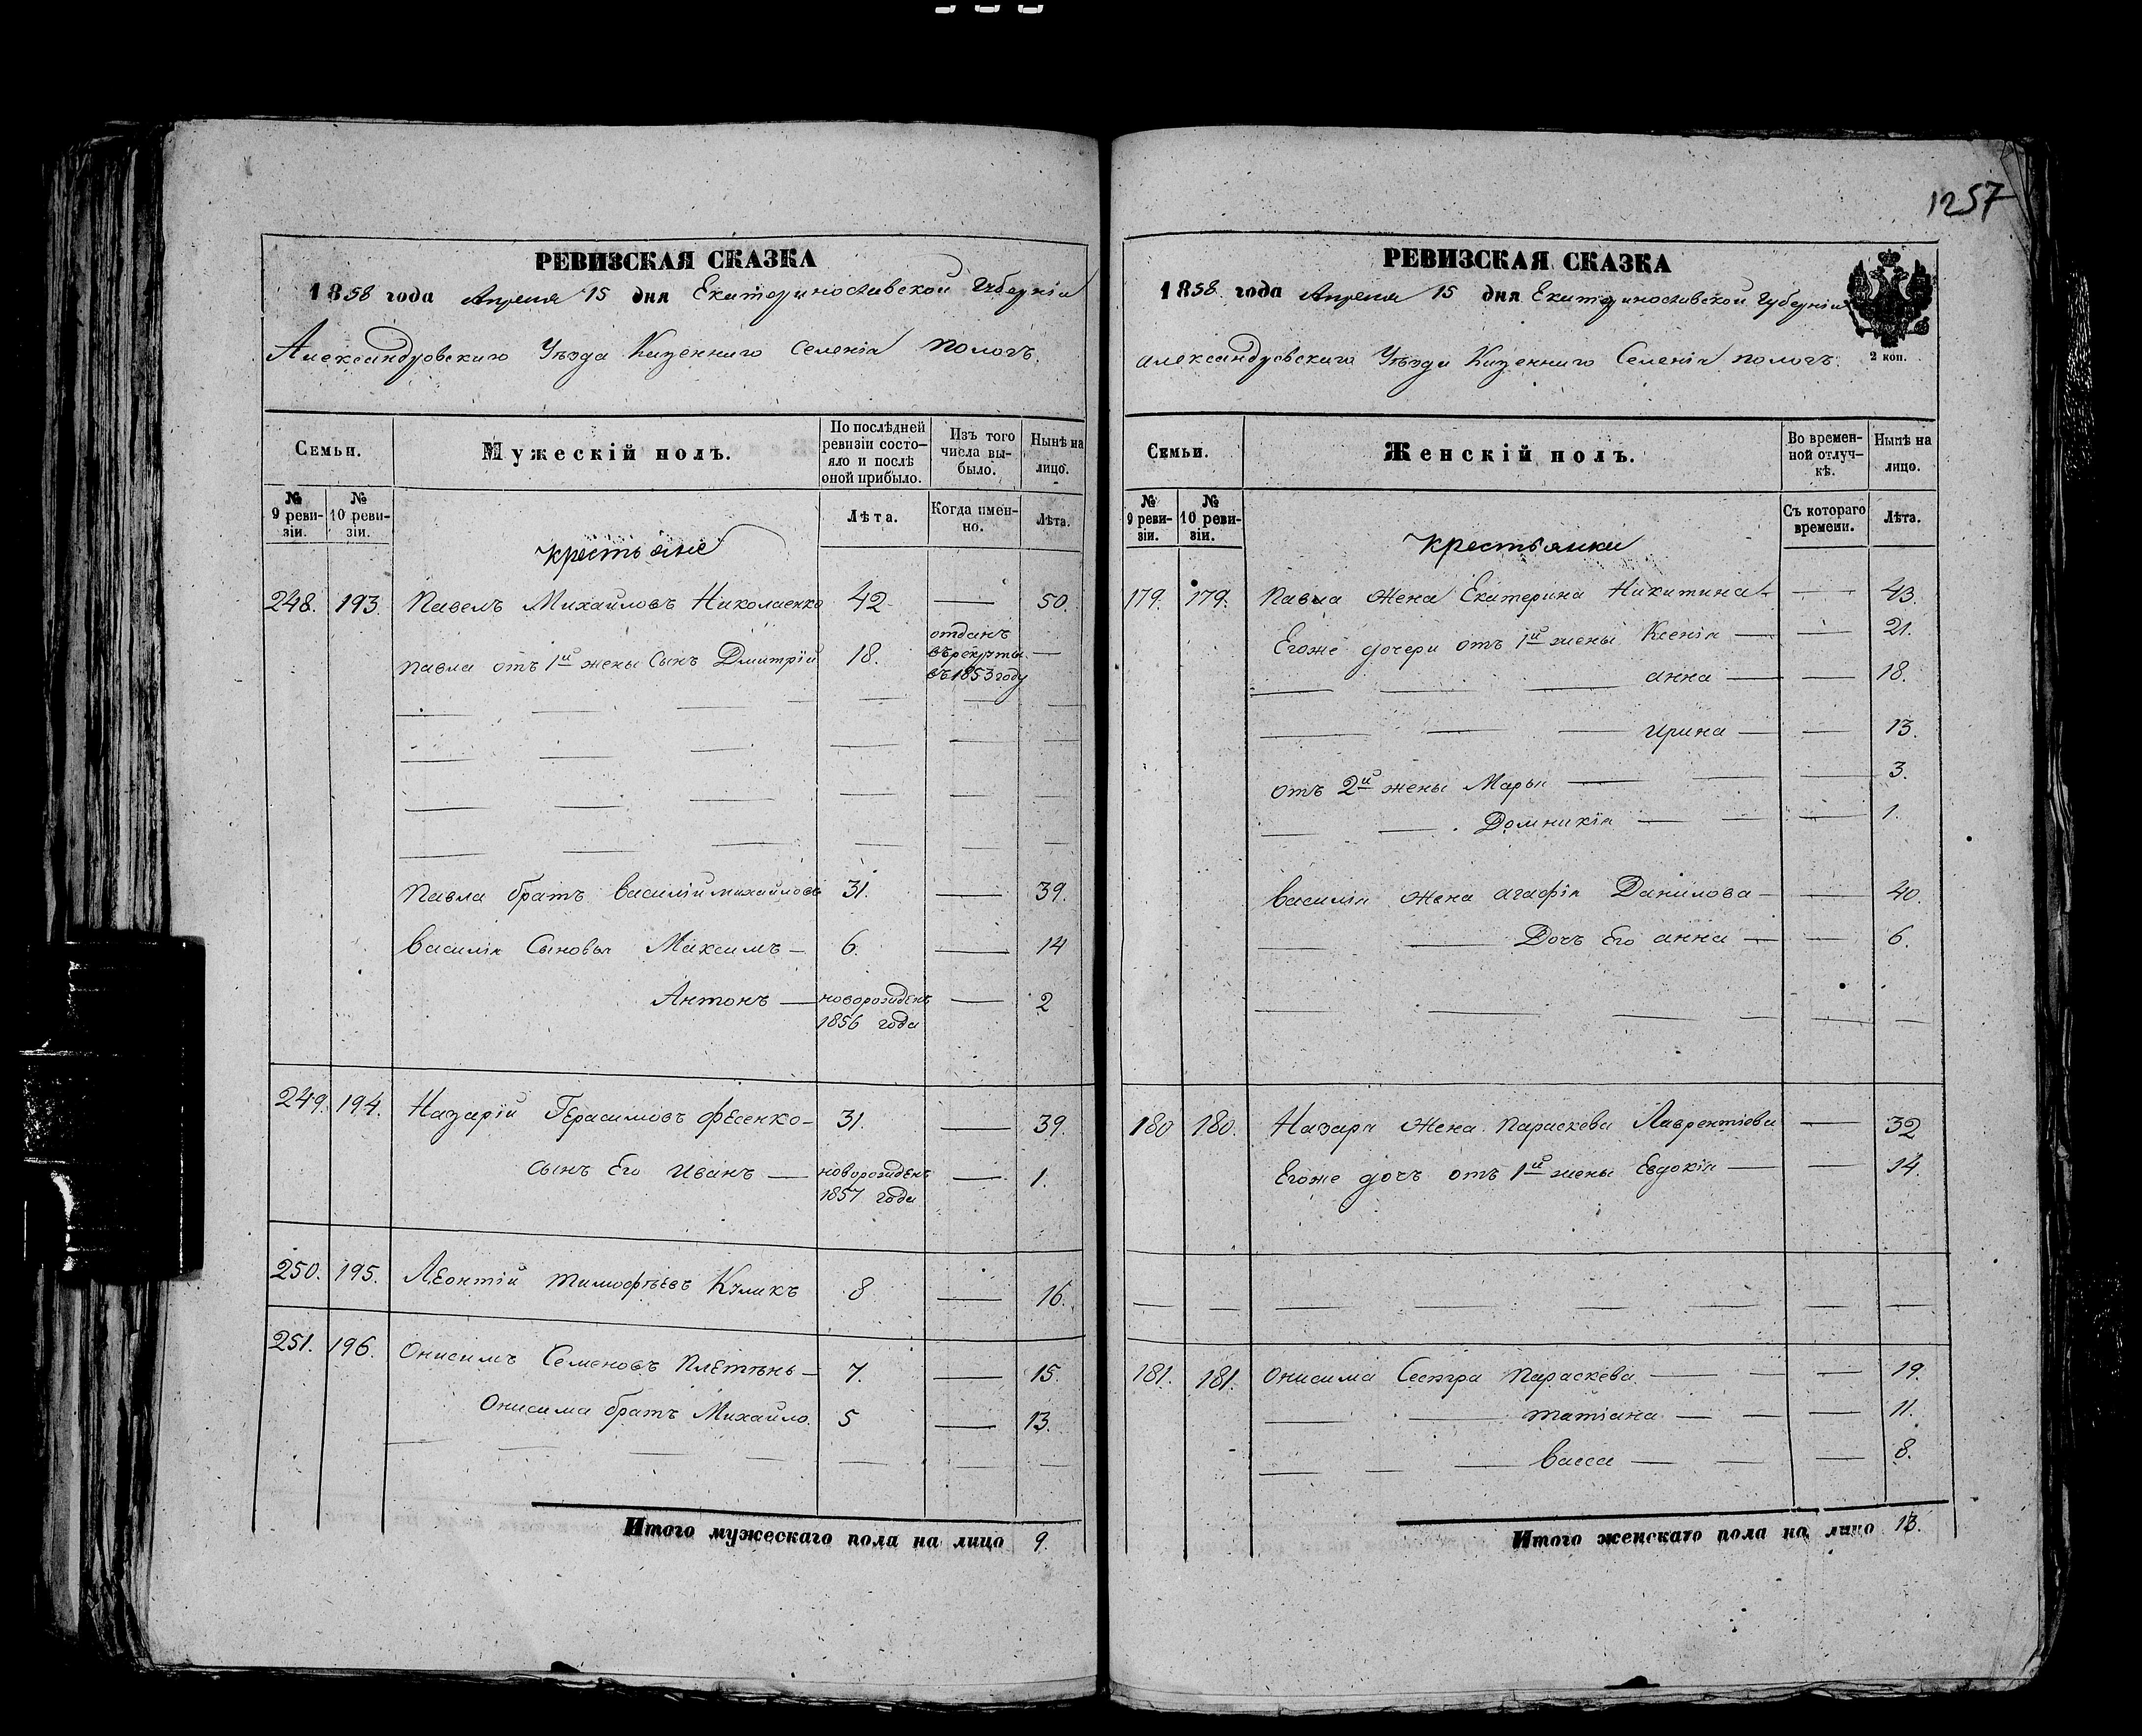 1257
РЕВИЗСКАЯ СКАЗКА
1858 года Апреля 15 дня Екатеринославской Губерніи
Александровскаго Уѣзда Казеннаго Селенія Пологъ.
Семьи. Мужескій полъ. По послѣдней ревизіи состояло и послѣ оной прибыло. Изъ того числа выбыло. Нынѣ на лицо.
№ 9 ревизіи. № 10 ревизіи. Лѣта. Когда именно. Лѣта.
Крестьяне
248. 193. Павелъ Михайловъ Николаенко 42. — 50.
Павла отъ 1й жены Сынъ Дмитрій 18. отданъ въ рекруты въ 1853 году —
Павла братъ Василій Михайловъ 31. — 39.
Василія Сыновья Максимъ — 6. — 14
Антонъ — новорожденъ 1856 года — 2
249. 194. Назарій Герасимовъ Фесенко — 31. — 39.
Сынъ Его Иванъ — новорожденъ 1857 года — 1.
250. 195. Леонтій Тимофѣевъ Куликъ 8 — 16.
251. 196. Онисимъ Семеновъ Плетѣнь — 7. — 15.
Онисима братъ Михайло. 5 — 13.
Итого мужескаго пола на лицо 9.
РЕВИЗСКАЯ СКАЗКА
1858 года Апреля 15 дня Екатеринославской Губерніи
Александровскаго Уѣзда Казеннаго Селенія Пологъ.
2 коп.
Семьи. Женскій полъ. Во временной отлучкѣ. Нынѣ на лицо.
№ 9 ревизіи. № 10 ревизіи. Съ котораго времени. Лѣта.
Крестьянки
179. 179. Павла Жена Екатерина Никитина — — 43.
Егоже дочери отъ 1й жены Ксенія — — 21.
анна — — 18.
Ирина — — 13.
отъ 2й жены Марья — — 3.
Домникія — — 1.
Василія Жена Агафія Данилова — — 40.
Дочь Его анна — — 6.
180 180. Назара Жена Параскева Лаврентіева — 32
Егоже дочь отъ 1й жены Евдокія — — 14.
181. 181. Онисима Сестра Параскева — — 19.
Татіана — — 11.
Васса — — 8.
Итого женскаго пола на лицо 13.